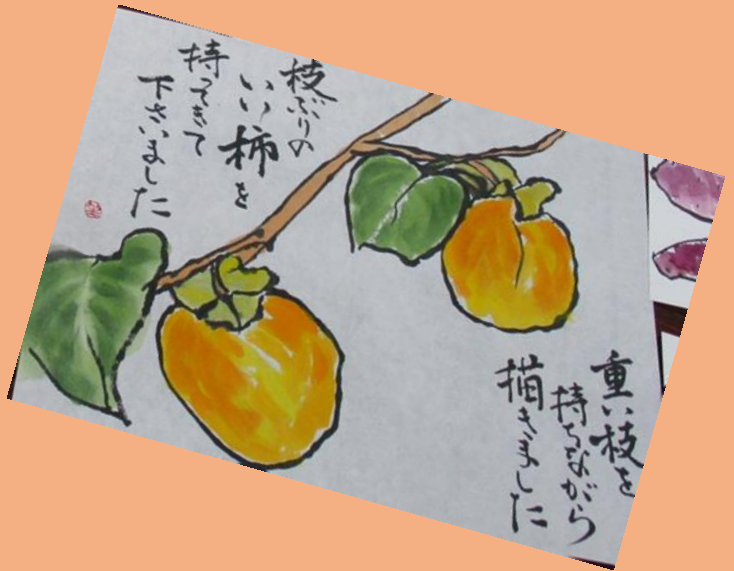 枝ぶりの
いい柿を
持ってきて
下さいました
重い枝を
持ちながら
描きました